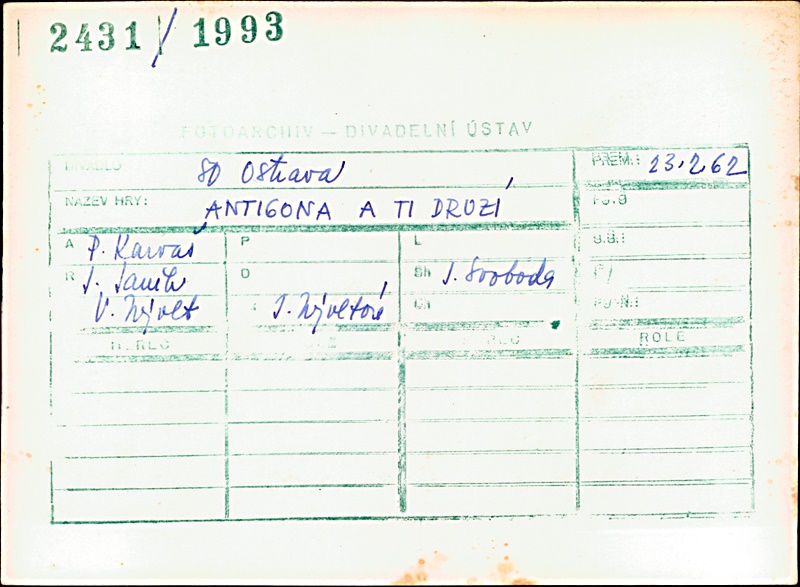 2431/1993
FOTOARCHIV — DIVADELNÍ ÚSTAV
DIVADLO SD Ostrava PREM.: 23.2.62
NÁZEV HRY: ANTIGONA A TI DRUZÍ
A P. Karvaš P L S.Š.:
R J. Janík O Sh J. Svoboda
V. Nývlt J. Nývltová Ch
HEREC ROLE